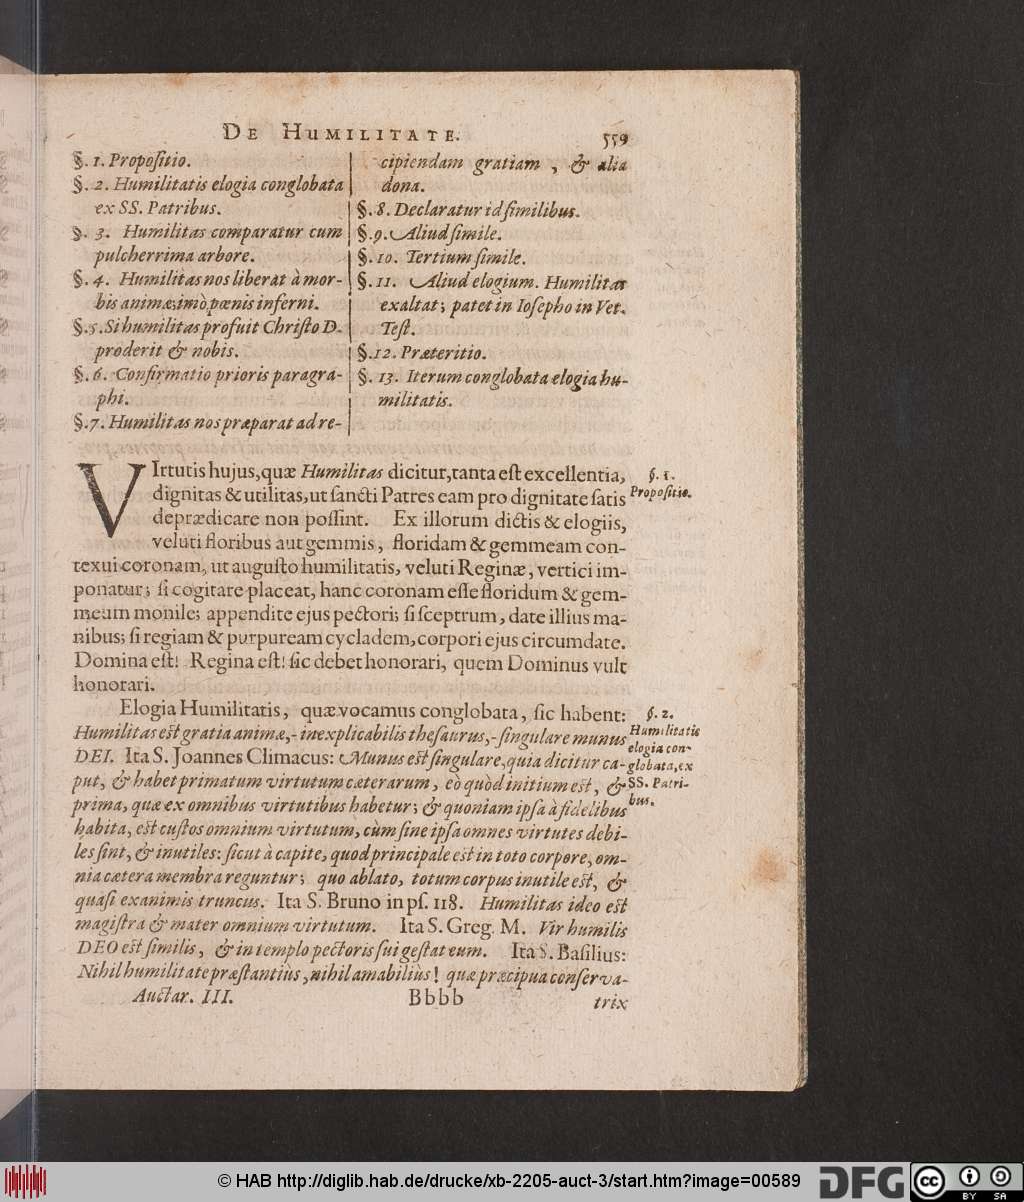 DE HUMILITATE. 559
§. 1. Propositio.
§. 2. Humilitatis elogia conglobata
ex SS. Patribus.
§. 3. Humilitas comparatur cum
pulcherrima arbore.
§. 4. Humilitas nos liberat à mor-
bis animæ; imò pœnis inferni.
§. 5. Si humilitas profuit Christo D.
proderit & nobis.
§. 6. Confirmatio prioris paragra-
phi.
§. 7. Humilitas nos præparat ad re-
cipiendam gratiam, & alia
dona.
§. 8. Declaratur id similibus.
§. 9. Aliud simile.
§. 10. Tertium simile.
§. 11. Aliud elogium. Humilitas
exaltat; patet in Iosepho in Vet.
Test.
§. 12. Præteritio.
§. 13. Iterum conglobata elogia hu-
militatis.
VIrtutis hujus, quæ Humilitas dicitur, tanta est excellentia,
dignitas & utilitas, ut sancti Patres eam pro dignitate satis
deprædicare non possint. Ex illorum dictis & elogiis,
veluti floribus aut gemmis, floridam & gemmeam con-
texui coronam, ut augusto humilitatis, veluti Reginæ, vertici im-
ponatur; si cogitare placeat, hanc coronam esse floridum & gem-
meum monile; appendite ejus pectori; si sceptrum, date illius ma-
nibus; si regiam & purpuream cycladem, corpori ejus circumdate.
Domina est! Regina est! sic debet honorari, quem Dominus vult
honorari.
§. 1.
Propositio.
Elogia Humilitatis, quæ vocamus conglobata, sic habent:
Humilitas est gratia animæ, - inexplicabilis thesaurus, - singulare munus
DEI. Ita S. Joannes Climacus: Munus est singulare, quia dicitur ca-
put, & habet primatum virtutum cæterarum, eò quòd initium est, &
prima, quæ ex omnibus virtutibus habetur; & quoniam ipsa à fidelibus
habita, est custos omnium virtutum, cùm sine ipsa omnes virtutes debi-
les sint, & inutiles: sicut à capite, quod principale est in toto corpore, om-
nia cætera membra reguntur; quo ablato, totum corpus inutile est, &
quasi exanimis truncus. Ita S. Bruno in ps. 118. Humilitas ideo est
magistra & mater omnium virtutum. Ita S. Greg. M. Vir humilis
DEO est similis, & in templo pectoris sui gestat eum. Ita S. Basilius:
Nihil humilitate præstantiùs, nihil amabiliùs! quæ præcipua conserva-
§. 2.
Humilitatis
elogia con-
globata, ex
SS. Patri-
bus.
Auctar. III. Bbbb trix
© HAB http://diglib.hab.de/drucke/xb-2205-auct-3/start.htm?image=00589
DFG
cc
BY SA